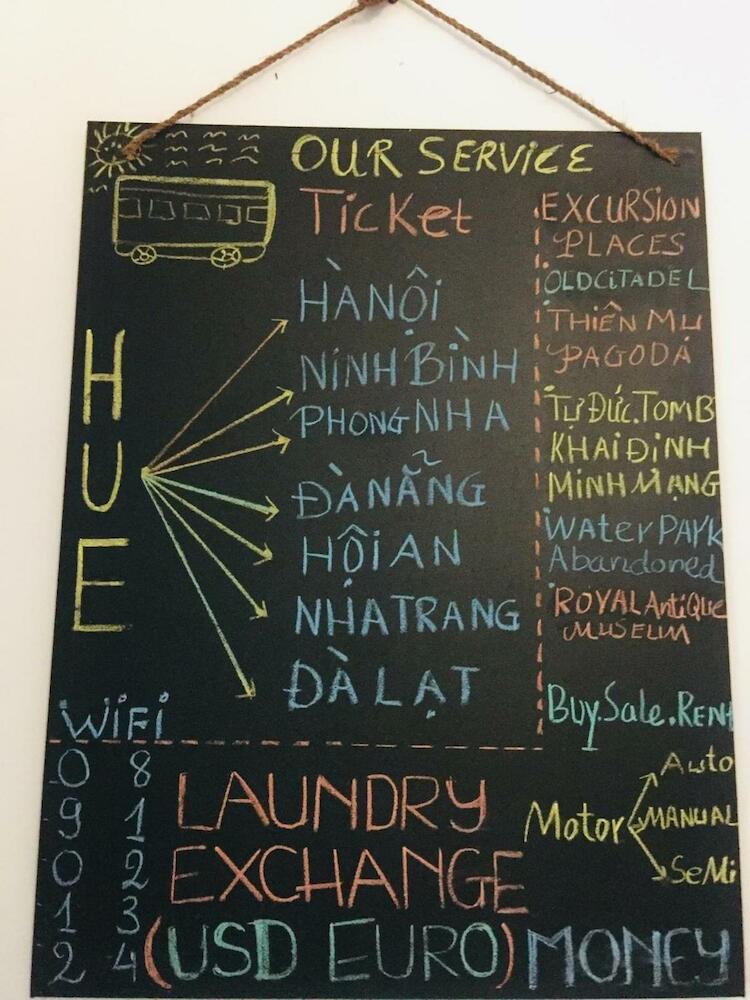 OUR SERVICE
Ticket
HUE
HÀNỘI
NINH BÌNH
PHONG NHA
ĐÀ NẴNG
HỘI AN
NHA TRANG
ĐÀ LẠT
EXCURSION
PLACES
OLD CITADEL
THIÊN MU
PAGODA
TỰ ĐỨC. TOMB
KHAI ĐỊNH
MINH MẠNG
Water PARK
Abandoned
ROYAL AntiQue
MUSEUM
Buy. Sale. RENT
Motor
Auto
MANUAL
SeMi
WiFi
0 8
9 1
0 2
1 3
2 4
LAUNDRY
EXCHANGE
(USD EURO) MONEY